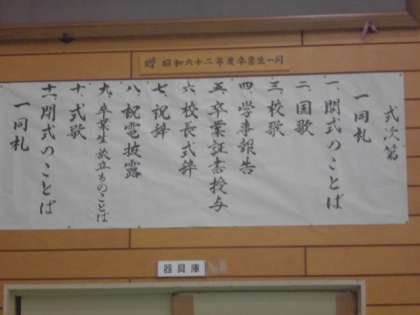 贈 昭和六十二年度卒業生一同
式次第
一同礼
一、開式のことば
二、国歌
三、校歌
四、学事報告
五、卒業証書授与
六、校長式辞
七、祝辞
八、祝電披露
九、卒業生旅立ちのことば
十、式歌
十一、閉式のことば
一同礼
器具庫